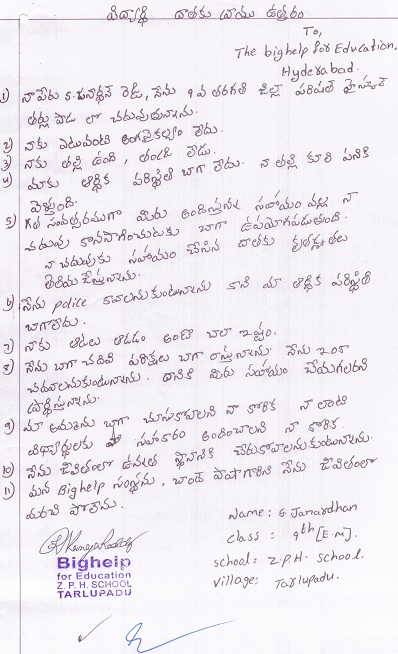 విద్యార్థి దాతకు వ్రాయు ఉత్తరం
To,
The bighelp for Education,
Hyderabad.
1) నా పేరు S. జనార్ధన్ రెడ్డి, నేను 9వ తరగతి జిల్లా పరిషత్ హైస్కూల్
తర్లుపాడు లో చదువుచున్నాను.
2) నాకు ఎటువంటి అంగవైకల్యం లేదు.
3) నాకు తల్లి ఉంది, తండ్రి లేడు.
4) మాకు ఆర్థిక పరిస్థితి బాగా లేదు. నా తల్లి కూలి పనికి
వెళ్తుంది.
5) గత సంవత్సరముగా మీరు అందిస్తున్న సహాయం వల్ల నా
చదువు కొనసాగించుటకు బాగా ఉపయోగపడుతుంది.
నా చదువుకు సహాయం చేసిన దాతకు కృతజ్ఞతలు
తెలియచేస్తున్నాను.
6) నేను police కావాలనుకుంటున్నాను కాని మా ఆర్థిక పరిస్థితి
బాగాలేదు.
7) నాకు ఆటలు ఆడడం అంటే చాలా ఇష్టం.
8) నేను బాగా చదివి పరీక్షలు బాగా రాస్తున్నాను. నేను ఇంకా
చదవాలనుకుంటున్నాను. దానికి మీరు సహాయం చేయగలరని
ప్రార్థిస్తున్నాను.
9) మా అమ్మను బాగా చూసుకోవాలని నా కోరిక నా లాంటి
విద్యార్థులకు సహకారం అందించాలని నా కోరిక.
10) నేను జీవితంలో ఉన్నత స్థానానికి చేరుకోవాలనుకుంటున్నాను.
11) మన Bighelp సంస్థను, చాంద్ పాషాగారిని నేను జీవితంలో
మరచి పోలేను.
Name: G Janardhan
class: 9th [E.M].
school: Z.P.H. School.
village: Tarlupadu.
Bighelp
for Education
Z. P. H. SCHOOL
TARLUPADU